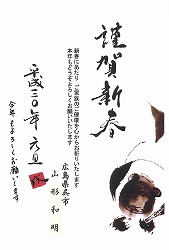 謹賀新春
新春にあたり ご家族のご健康を心からお祈りいたします
本年もどうぞよろしくお願いいたします
広島県呉市
山形和明
平成三〇年 元旦
今年もよろしくお願いします